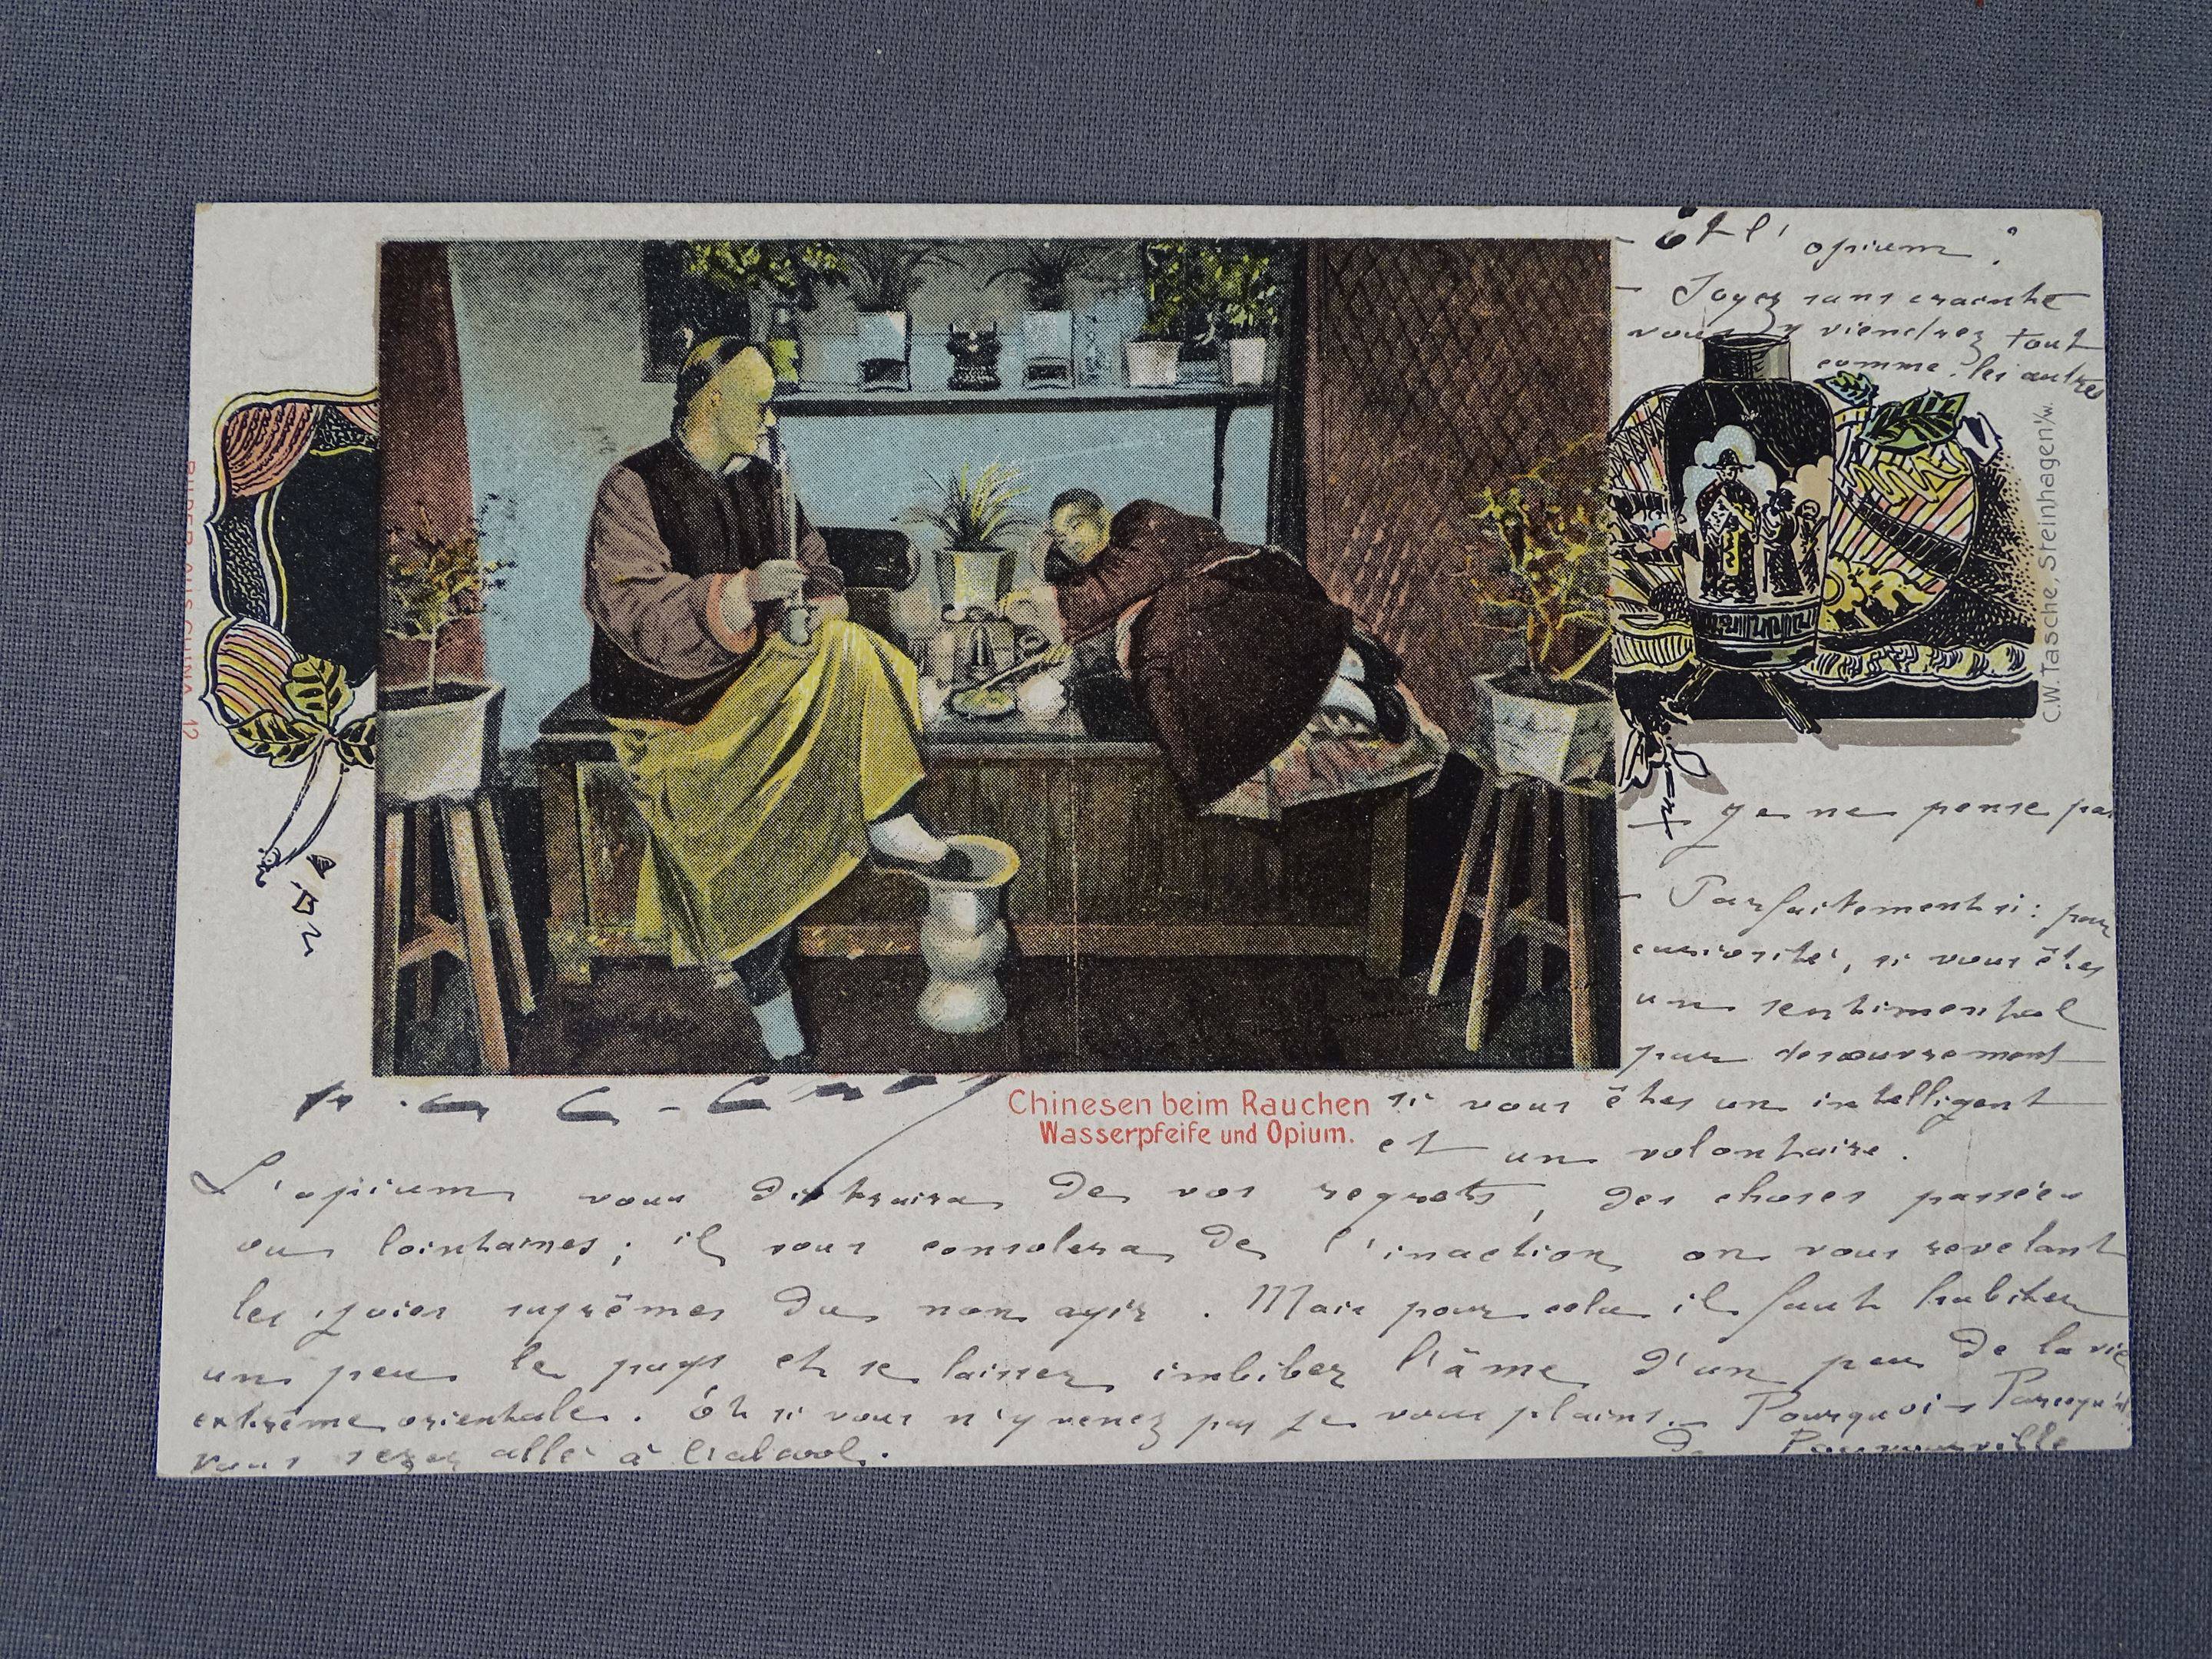 - Et l'opium ?
- Soyez sans crainte
vous y viendrez tout
comme les autres
- Je ne pense pas
- Parfaitement si : par
curiosité, si vous êtes
un sentimental
par désœuvrement
si vous êtes un intelligent
et un volontaire.
L'opium vous distraira de vos regrets, des choses passées
ou lointaines ; il vous consolera de l'inaction en vous revelant
les joies suprêmes du non agir. Mais pour cela il faut habiter
un peu le pays et se laisser imbiber l'âme d'un peu de la vie
extrême orientale. Et si vous n'y venez pas je vous plains. - Pourquoi - Parcequ'il
vous serez allé à l'alcool.
de Pouvourville
Chinesen beim Rauchen
Wasserpfeife und Opium.
C.W. Tasche, Steinhagen i/W.
BILDER AUS CHINA 12